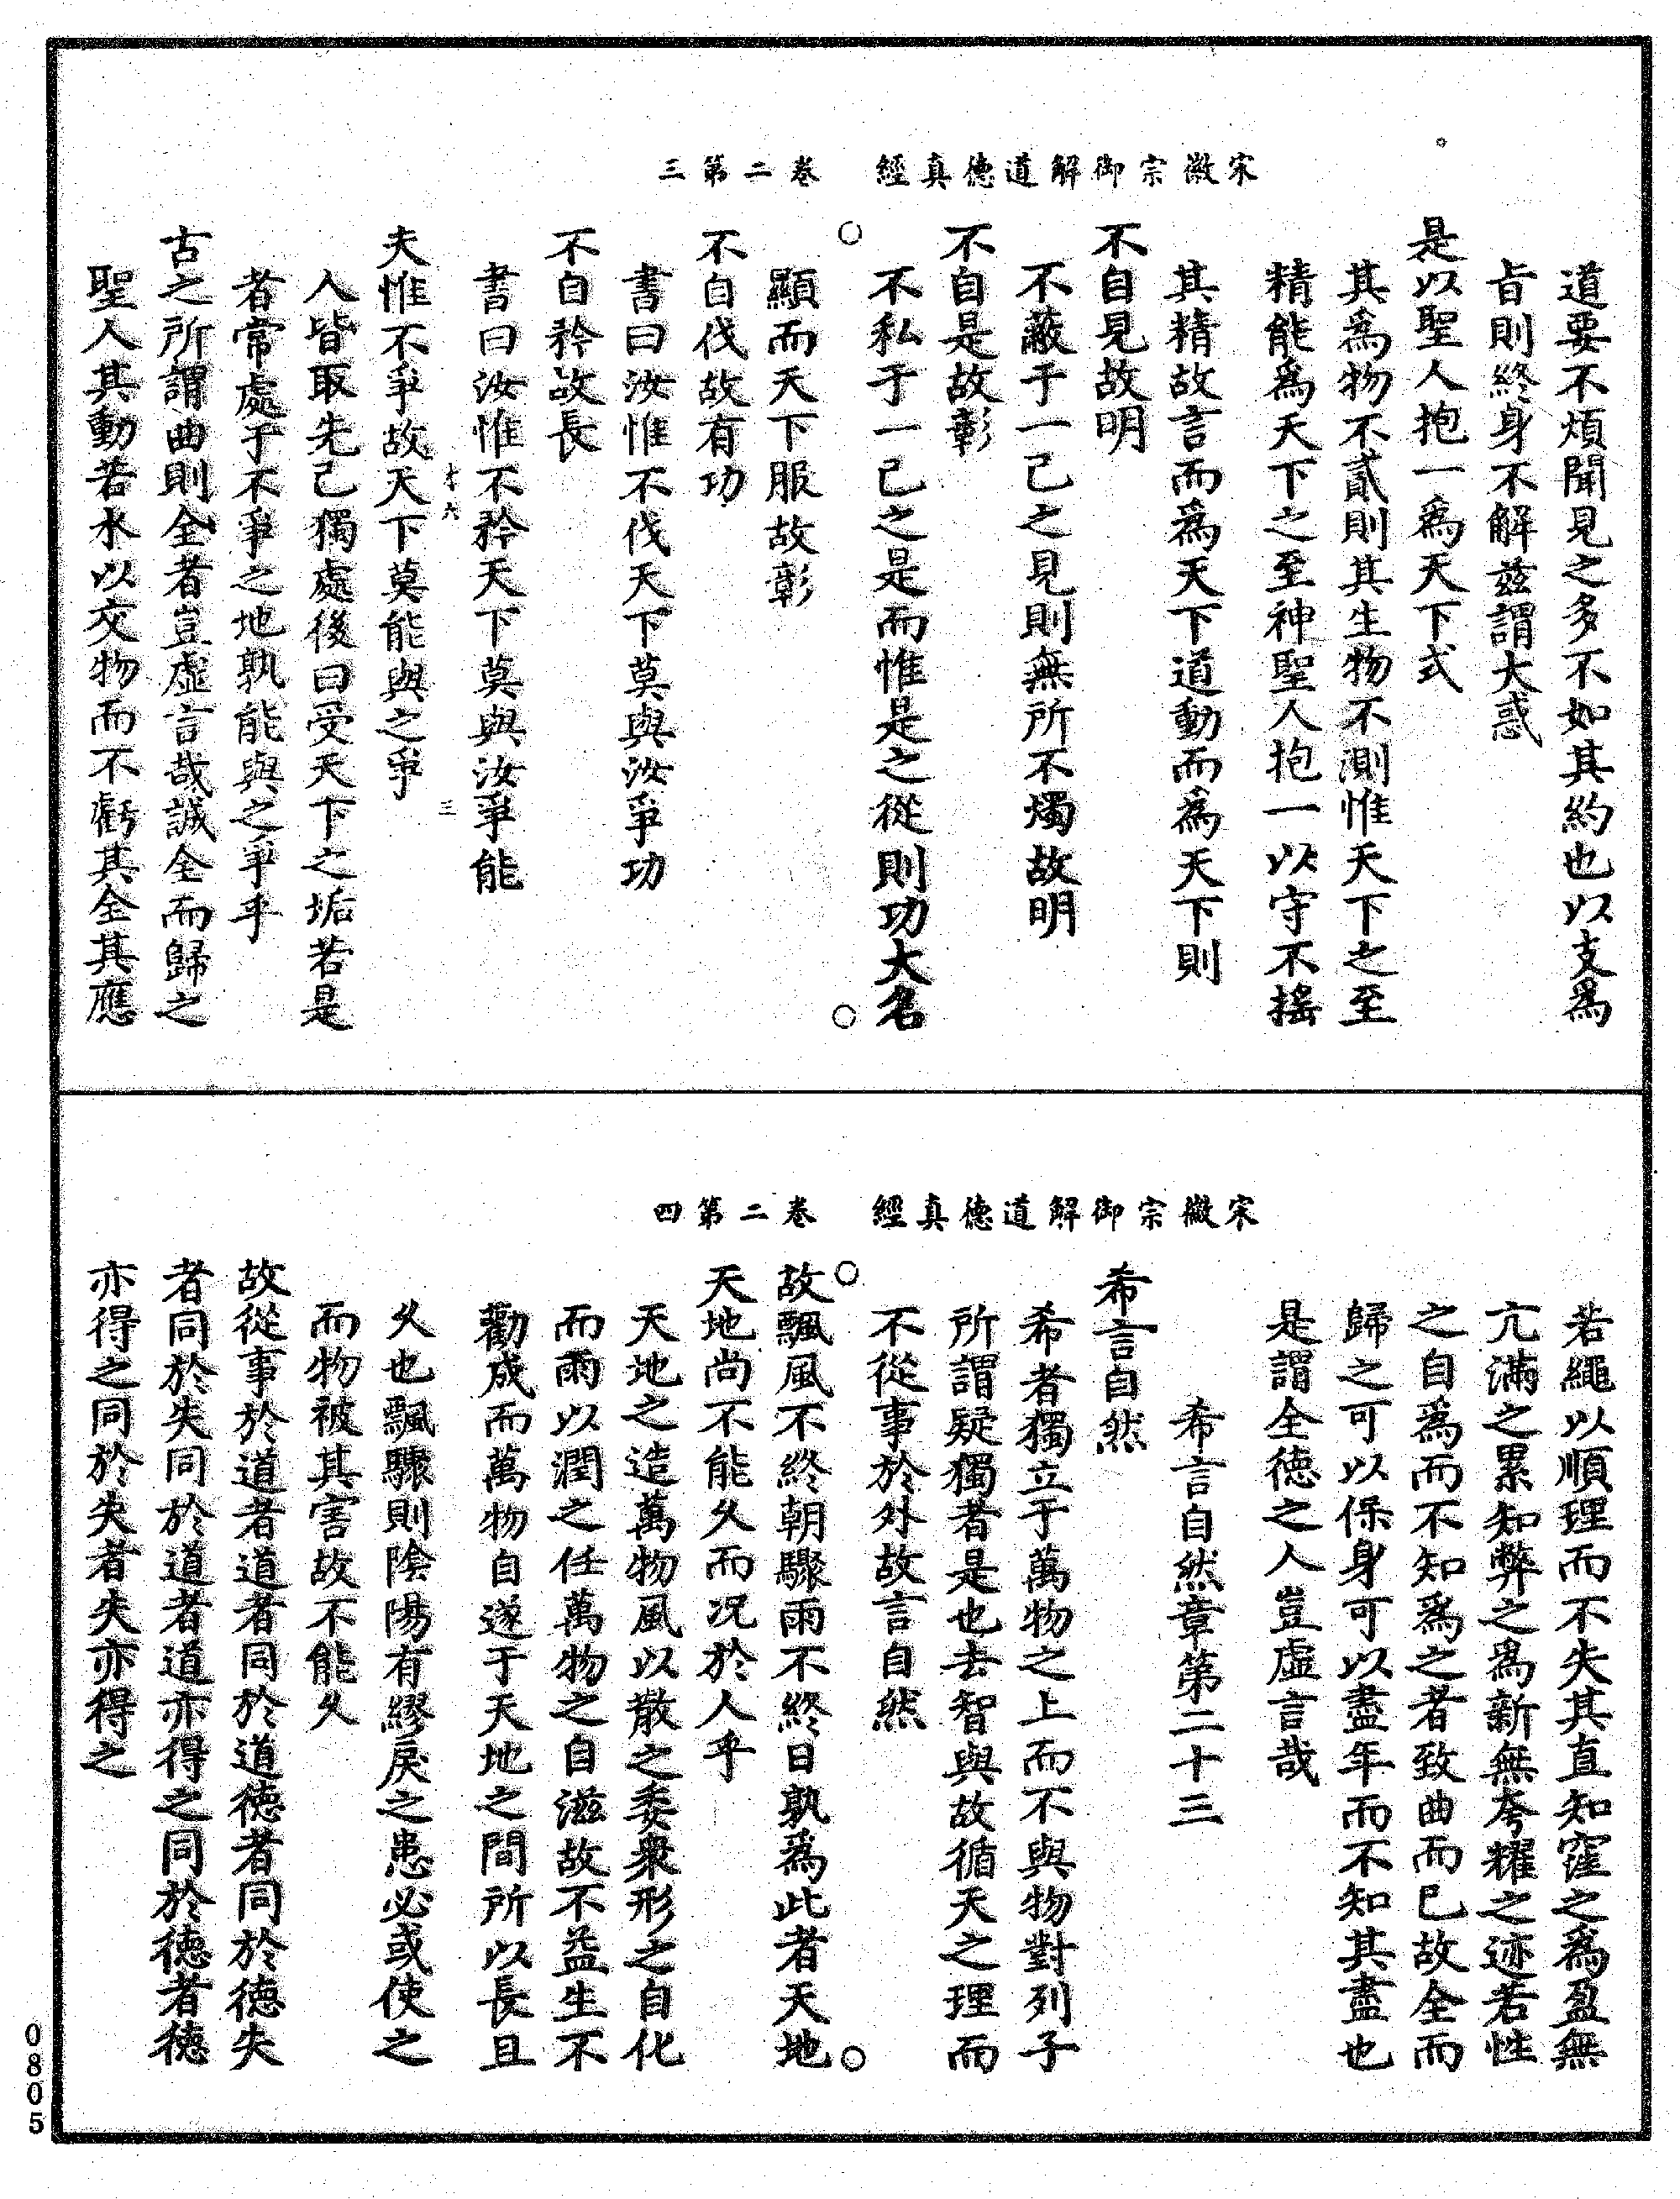 宋徽宗御解道德真經　卷二第三
道要不煩聞見之多不如其約也以支爲
旨則終身不解兹謂大惑
是以聖人抱一爲天下式
其爲物不貳則其生物不測惟天下之至
精能爲天下之至神聖人抱一以守不搖
其精故言而爲天下道動而爲天下則
不自見故明
不蔽于一己之見則無所不燭故明
不自是故彰
不私于一己之是而惟是之從則功大名
顯而天下服故彰
不自伐故有功
書曰汝惟不伐天下莫與汝爭功
不自矜故長
書曰汝惟不矜天下莫與汝爭能
十六　三
夫惟不爭故天下莫能與之爭
人皆取先己獨處後曰受天下之垢若是
者常處于不爭之地孰能與之爭乎
古之所謂曲則全者豈虛言哉誠全而歸之
聖人其動若水以交物而不虧其全其應
宋徽宗御解道德真經　卷二第四
若繩以順理而不失其直知窪之爲盈無
亢滿之累知弊之爲新無夸耀之迹若性
之自爲而不知爲之者致曲而已故全而
歸之可以保身可以盡年而不知其盡也
是謂全德之人豈虛言哉
希言自然章第二十三
希言自然
希者獨立于萬物之上而不與物對列子
所謂疑獨者是也去智與故循天之理而
不從事於外故言自然
故飄風不終朝驟雨不終日孰爲此者天地
天地尚不能久而况於人乎
天地之造萬物風以散之委衆形之自化
而雨以潤之任萬物之自滋故不益生不
勸成而萬物自遂于天地之間所以長且
久也飄驟則陰陽有繆戾之患必或使之
而物被其害故不能久
故從事於道者道者同於道德者同於德失
者同於失同於道者道亦得之同於德者德
亦得之同於失者失亦得之
0805